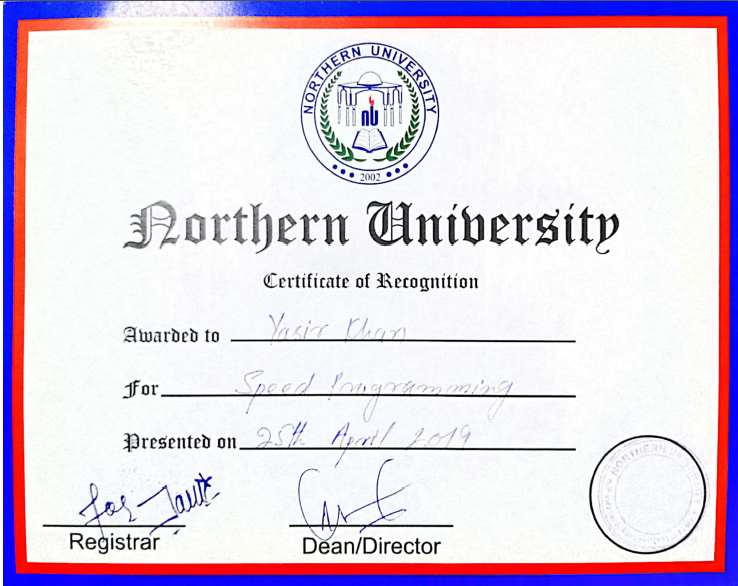 NORTHERN UNIVERSITY
nu
2002
Northern University
Certificate of Recognition
Awarded to Yasir Khan
For Speed Programming
Presented on 25th April 2019
Registrar
Dean/Director
NORTHERN